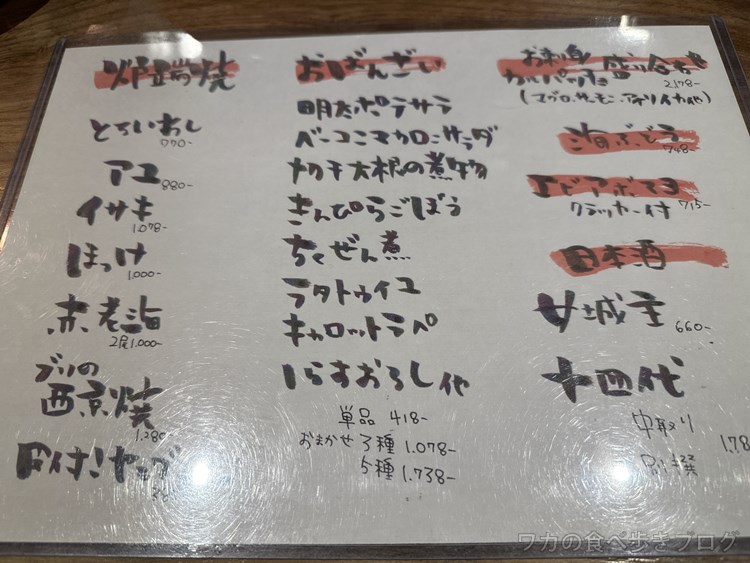 炉端焼
とろいわし
770-
アユ
880-
イサキ
1.078-
ほっけ
1.000-
赤老海
2尾1.000-
ブリの
西京焼
1.280
おばんざい
明太ポテサラ
ベーコンマカロニサラダ
切干大根の煮物
きんぴらごぼう
ちくぜん煮
ラタトゥイユ
キャロットラペ
しらすおろし 他
単品 418-
おまかせ3種 1.078-
5種 1.738-
お刺身 盛り合わせ
カルパッチョ
2178-
(マグロ、サーモン、アオリイカ他)
海ぶどう
748-
エビアボマヨ
クラッカー付 715-
日本酒
女城主
660-
十四代
中取り
1.78
別撰
ワカの食べ歩きブログ